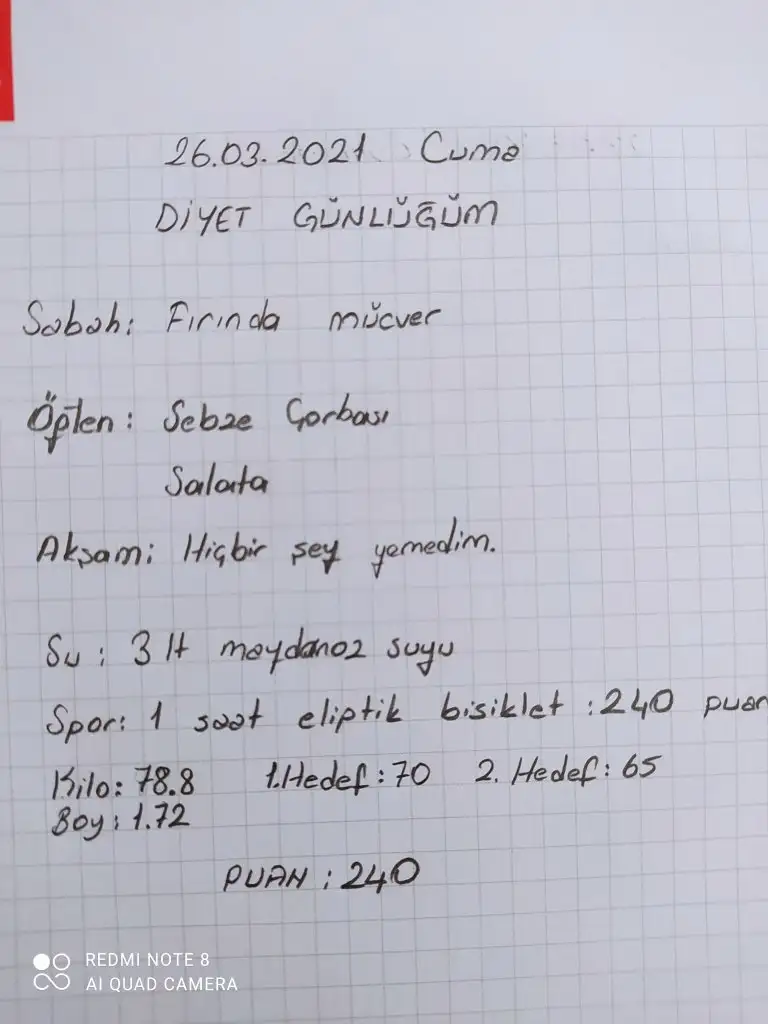 26.03.2021 Cuma
DİYET GÜNLÜĞÜM
Sabah: Fırında mücver
Öğlen: Sebze Çorbası
Salata
Akşam: Hiçbir şey yemedim.
Su: 3 lt maydanoz suyu
Spor: 1 saat eliptik bisiklet: 240 puan
Kilo: 78.8 1.Hedef: 70 2. Hedef: 65
Boy: 1.72
PUAN: 240
REDMI NOTE 8
AI QUAD CAMERA